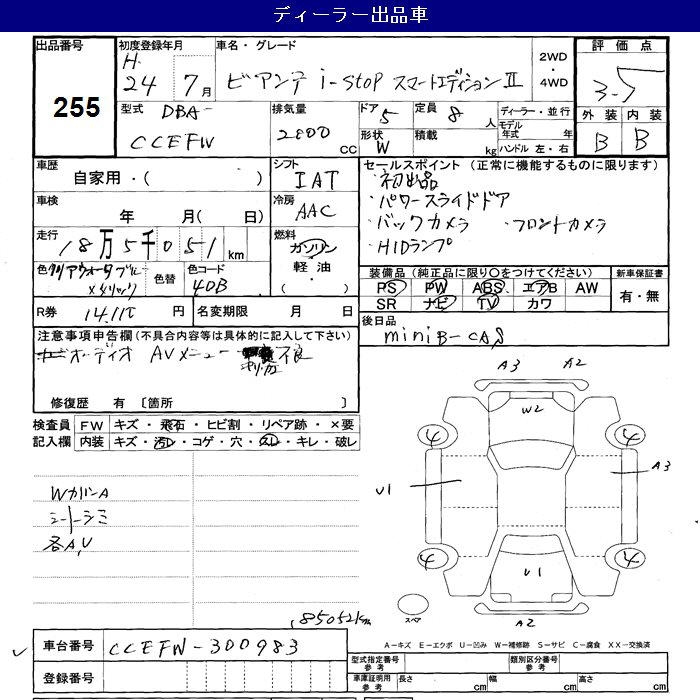 ディーラー出品車
出品番号 255
初度登録年月 H. 24年 7月
車名・グレード ビアンテ i-stop スマートエディションⅡ
2WD・4WD
評価点 3-5
外装 内装
B B
型式 DBA- CCEFW
排気量 2000 CC
ドア 5
形状 W
定員 8 人
積載 kg
ディーラー・並行
モデル年式 年
ハンドル 左・右
車歴 自家用・( )
シフト IAT
車検 年 月(日)
冷房 AAC
走行 18万5千051 km
燃料 ガソリン 軽油・
色 クリアウォーターブルーメタリック
色替
色コード 40B
R券 円
名変期限 月 日
セールスポイント (正常に機能するものに限ります)
・初出品
・パワースライドドア
・バックカメラ ・フロントカメラ
・HIDランプ
装備品(純正品に限り○をつけてください)
新車保証書
PS PW ABS エアB AW
SR ナビ TV カワ
有・無
後日品
miniB-CAS
注意事項申告欄(不具合内容等は具体的に記入して下さい)
オーディオ AVメニュー 不良
修復歴 有 〔箇所 〕
検査員記入欄
FW キズ・飛石・ヒビ割・リペア跡・×要
内装 キズ・汚レ・コゲ・穴・スレ・キレ・破レ
WカバーA
シートシミ
各A,U
A3 A2
W2
4 4
U1 A3
4 4
U1
スペア A2
185052km
車台番号 CCEFW-300983
登録番号
A=キズ E=エクボ U=凹み W=補修跡 S=サビ C=腐食 XX=交換済
型式指定番号 参考
類別区分番号 参考
車庫証明用 参考
長さ cm 幅 cm 高さ cm